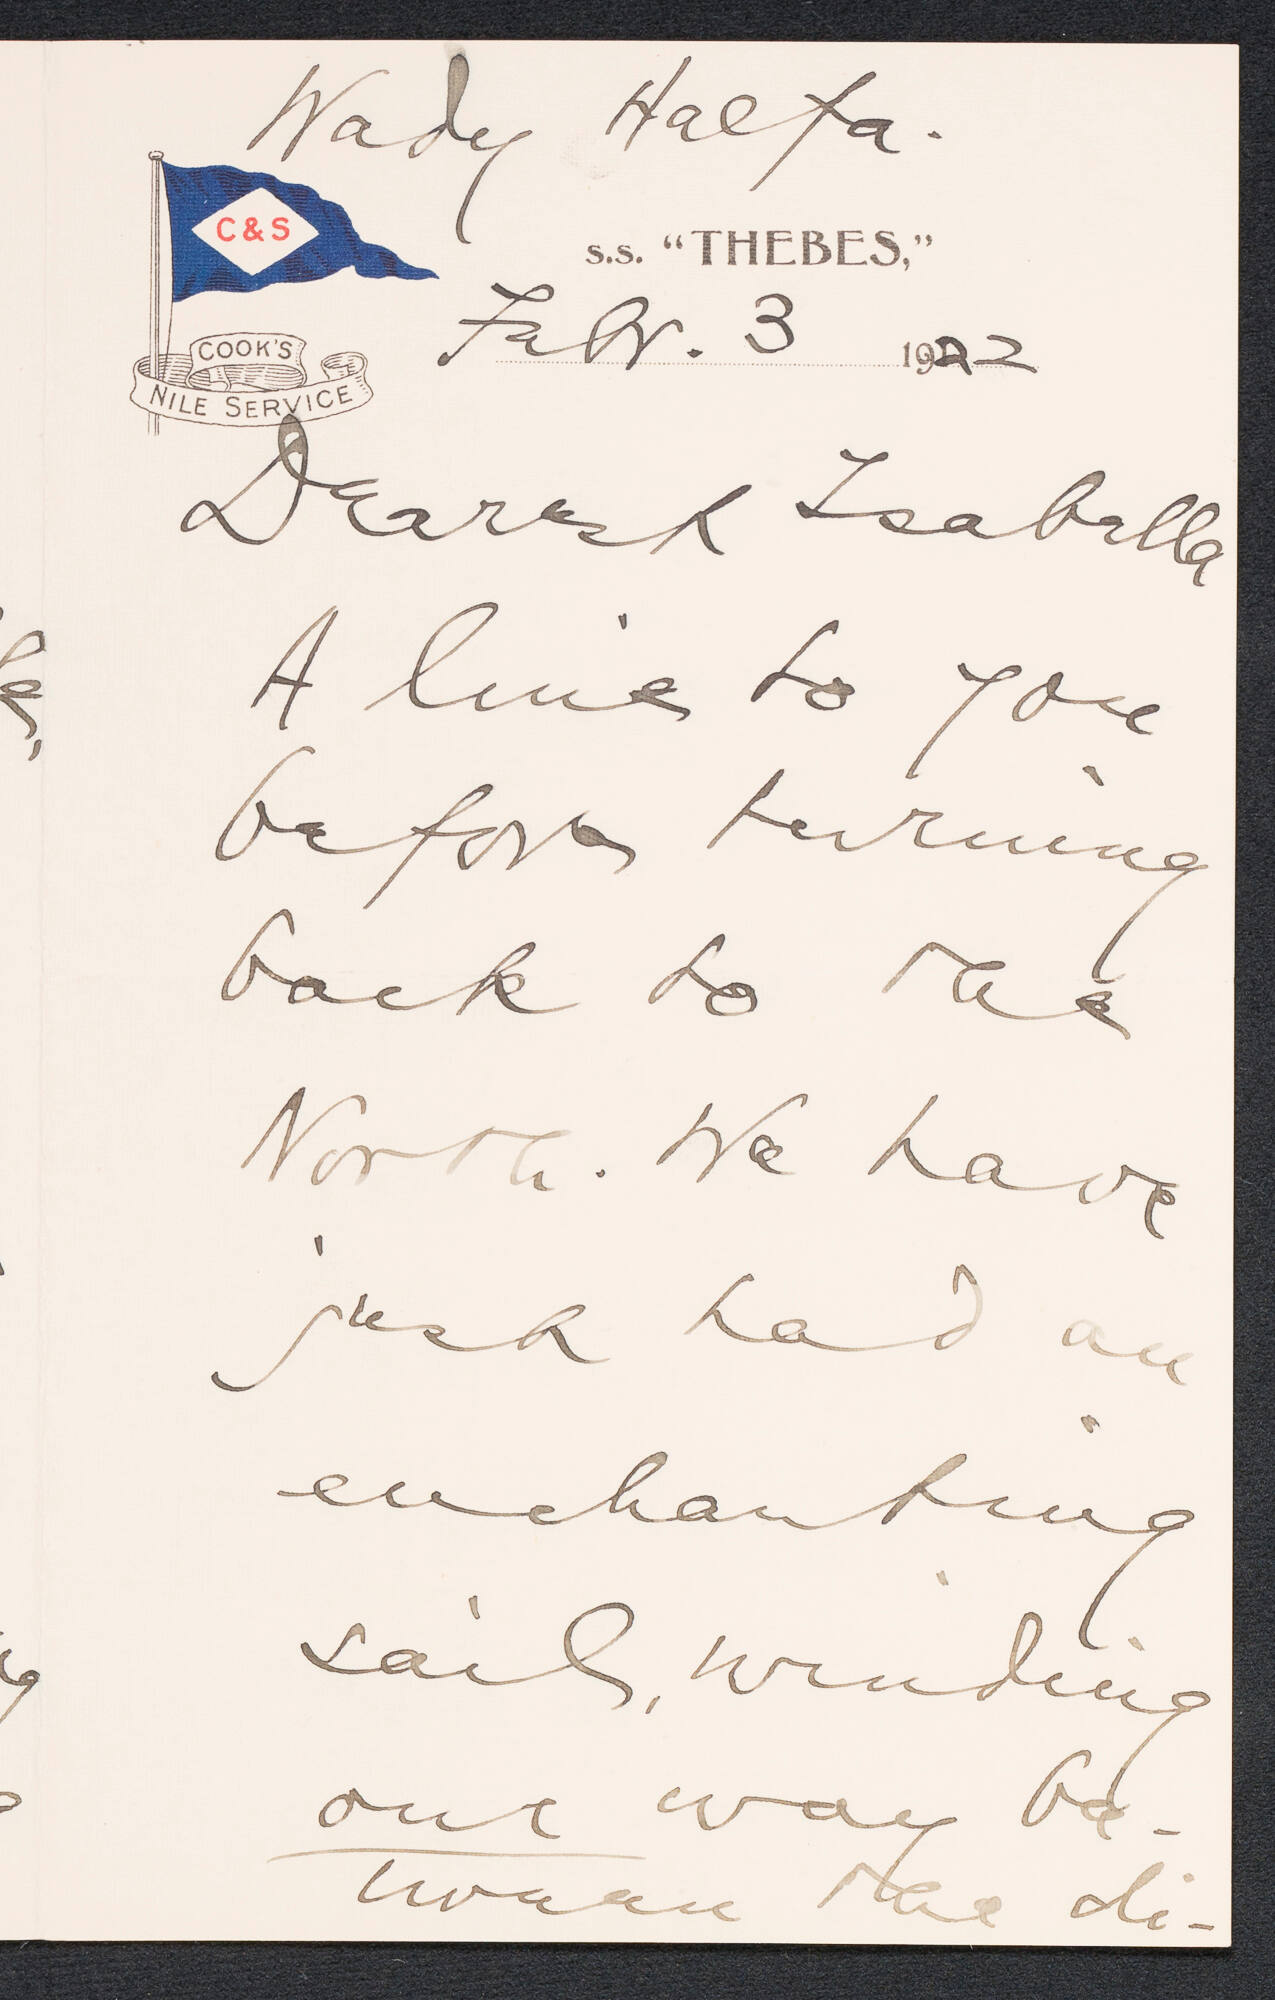 Wady Halfa.
C & S
s.s. "THEBES,"
COOK'S
NILE SERVICE
Febr. 3 1922
Dearest Isabella
A line to you
before turning
back to the
North. We have
just had an
enchanting
sail, winding
our way be-
tween the di-